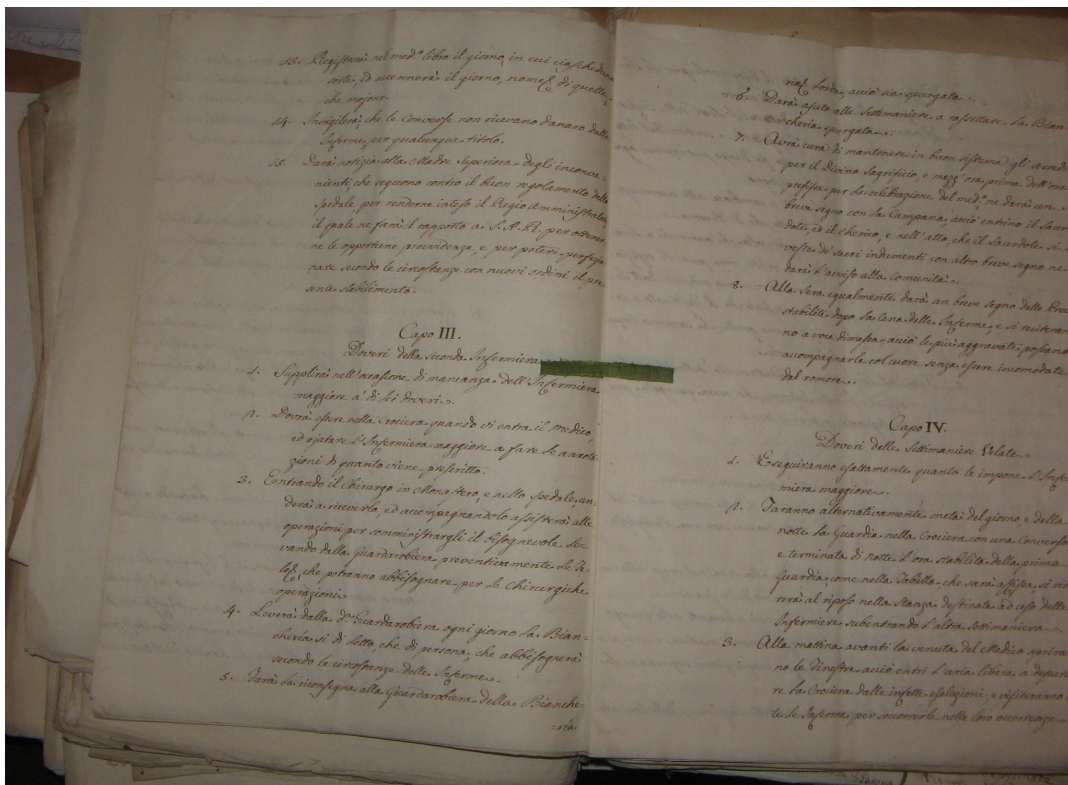 13. Registrerà nel med.º libro il giorno, in cui ciascheduna
sorte, ed accennerà il giorno, nome di quelle,
che mojono.
14. Invigilerà, che le Converse non ricevano danaro dalle
Inferme, per qualunque titolo.
15. Darà notizia alla Madre Superiora degli inconve-
nienti, che seguono contro il buon regolamento dello
Spedale, per renderne inteso il Regio Amministratore,
il quale ne farà il rapporto a S.A.R. per ottener-
ne le opportune providenze, e per poter perfezio-
nare secondo le circostanze con nuovi ordini il pre-
sente stabilimento.
Capo III.
Doveri della seconda Infermiera
1. Supplirà nell'occasione di mancanza dell'Infermiera
maggiore à di lei doveri.
2. Dovrà essere nella Crociera quando vi entra il Medico,
ed ajutare l'Infermiera maggiore a fare le annota-
zioni di quanto viene prescritto.
3. Entrando il Chirurgo in Monastero, e nello spedale, an-
derà a riceverlo, ed accompagnandolo assisterà alle
operazioni per somministrargli il bisognevole le-
vando dalla Guardarobiera preventivamente le Te-
le, che potranno abbisognare per le Chirurgiche
operazioni.
4. Leverà dalla d.ª Guardarobiera ogni giorno la Bian-
cheria sì di letto, che di persona, che abbisognerà
secondo le circostanze delle Inferme.
5. Farà la riconsegna alla Guardarobiera della Bianche-
ria
ria lorda, acciò sia spurgata.
6. Darà ajuto alle Settimaniere a rassettare la Bian-
cheria spurgata.
7. Avrà cura di mantenere in buon sistema gli arredi
per il Divino Sagrificio, e mezz'ora prima dell'ora
prefissa per la celebrazione del med.º ne darà con
breve segno con la Campana, acciò entrino il Sacer-
dote, ed il Cherico, e nell'atto, che il Sacerdote si
veste de' sacri indumenti con altro breve segno ne
darà l'avviso alla Comunità.
8. Alla sera egualmente darà un breve segno delle Preci
stabilite dopo la Cena delle Inferme, e si reciteran-
no a voce dimessa acciò le più aggravate possano
accompagnarle col cuore senza essere incomodate
dal romore.
Capo IV.
Doveri delle Settimaniere Velate
1. Eseguiranno esattamente quanto le impone l'Infer-
miera maggiore.
2. Faranno alternativamente metà del giorno, e della
notte la Guardia nella Crociera con una Conversa
e terminata di notte l'ora stabilita della prima
Guardia, come nella Tabella che sarà affissa, si riti-
rerà al riposo nella stanza destinata ad uso delle
Infermiere subentrando l'altra Settimaniera
3. Alla mattina avanti la venuta del Medico apriran-
no le Finestre acciò entri l'aria libera a depura-
re la Crociera dalle infette esalazioni, e visiteranno
le Inferme, per soccorrerle nelle loro occorrenze